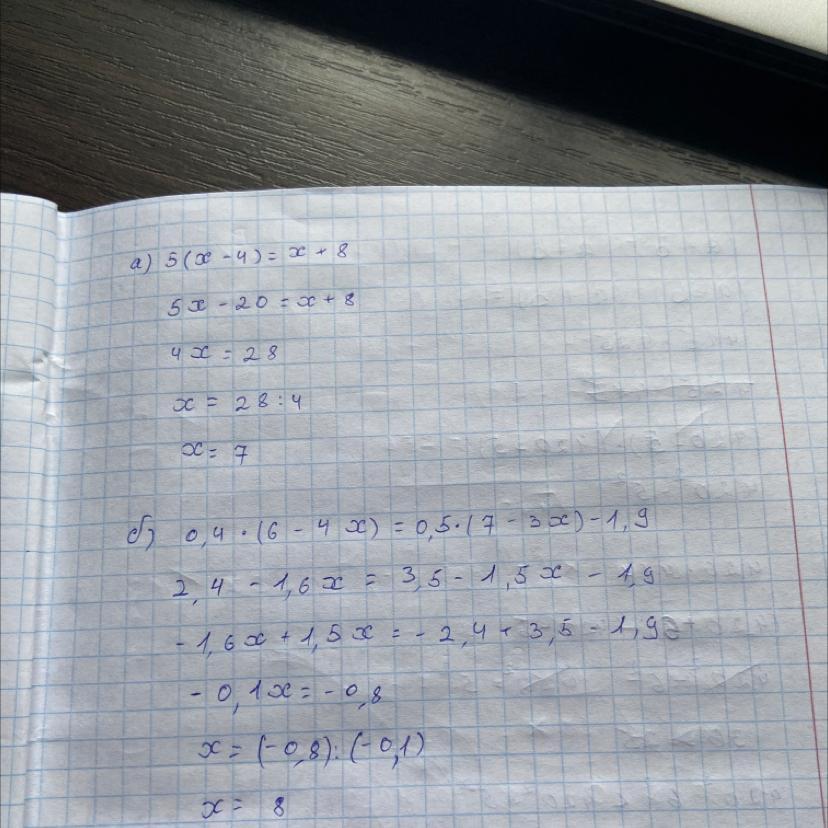 а) 5(x - 4) = x + 8
5x - 20 = x + 8
4x = 28
x = 28 : 4
x = 7
б) 0,4 · (6 - 4x) = 0,5 · (7 - 3x) - 1,9
2,4 - 1,6x = 3,5 - 1,5x - 1,9
- 1,6x + 1,5x = - 2,4 + 3,5 - 1,9
- 0,1x = - 0,8
x = (- 0,8) : (- 0,1)
x = 8